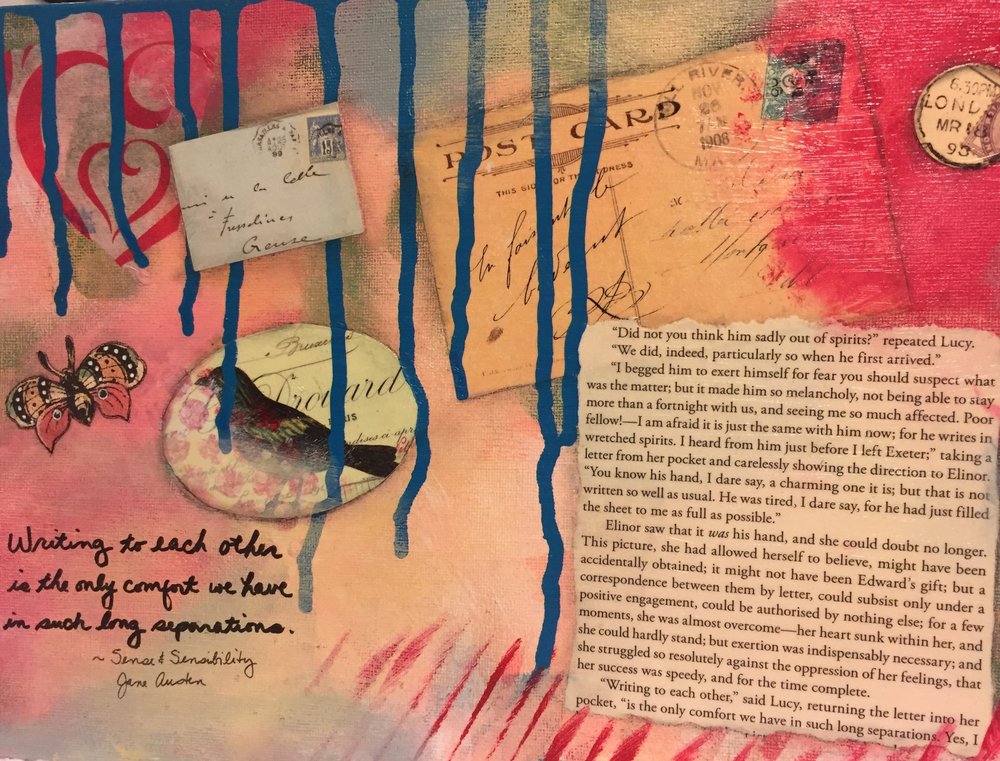 15
99
à
Creuse
RIVER,
NOV
26
1908
MA
POST CARD
THIS SIDE FOR THE ADDRESS
6.30PM
LOND
MR 18
95
Bruxe
Drouard
IS
“Did not you think him sadly out of spirits?” repeated Lucy.
“We did, indeed, particularly so when he first arrived.”
“I begged him to exert himself for fear you should suspect what
was the matter; but it made him so melancholy, not being able to stay
more than a fortnight with us, and seeing me so much affected. Poor
fellow!—I am afraid it is just the same with him now; for he writes in
wretched spirits. I heard from him just before I left Exeter;” taking a
letter from her pocket and carelessly showing the direction to Elinor.
“You know his hand, I dare say, a charming one it is; but that is not
written so well as usual. He was tired, I dare say, for he had just filled
the sheet to me as full as possible.”
Elinor saw that it was his hand, and she could doubt no longer.
This picture, she had allowed herself to believe, might have been
accidentally obtained; it might not have been Edward’s gift; but a
correspondence between them by letter, could subsist only under a
positive engagement, could be authorised by nothing else; for a few
moments, she was almost overcome—her heart sunk within her, and
she could hardly stand; but exertion was indispensably necessary; and
she struggled so resolutely against the oppression of her feelings, that
her success was speedy, and for the time complete.
“Writing to each other,” said Lucy, returning the letter into her
pocket, “is the only comfort we have in such long separations. Yes, I
Writing to each other
is the only comfort we have
in such long separations.
~ Sense & Sensibility
Jane Austen